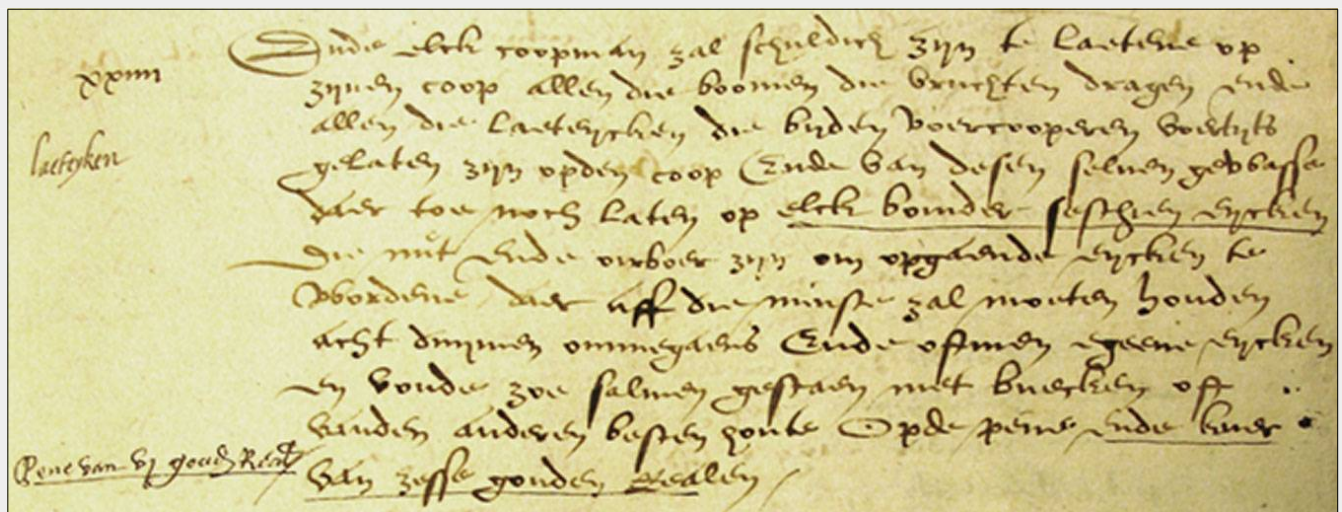 xxiiii
Ende elck coopman zal schuldich zijn te laetene op
zijnen coop allen die boomen die vruchten dragen ende
laeteyken
allen die laeteycken die byden voercooperen voertijts
gelaten zijn opden coop Ende van desen seluen gewasse
daer toe noch laten op elck boinder sesthien eycken
die nut ende oirboer zijn om opgaende eycken te
wordene daer aff die minste zal moeten houden
acht duymen ommegaens Ende oftmen egeene eycken
en vonde zoe salmen gestaen met buecken oft
vanden anderen besten houte Opde pene ende kuer
Pene van vj goud Real
van zesse gouden Realen